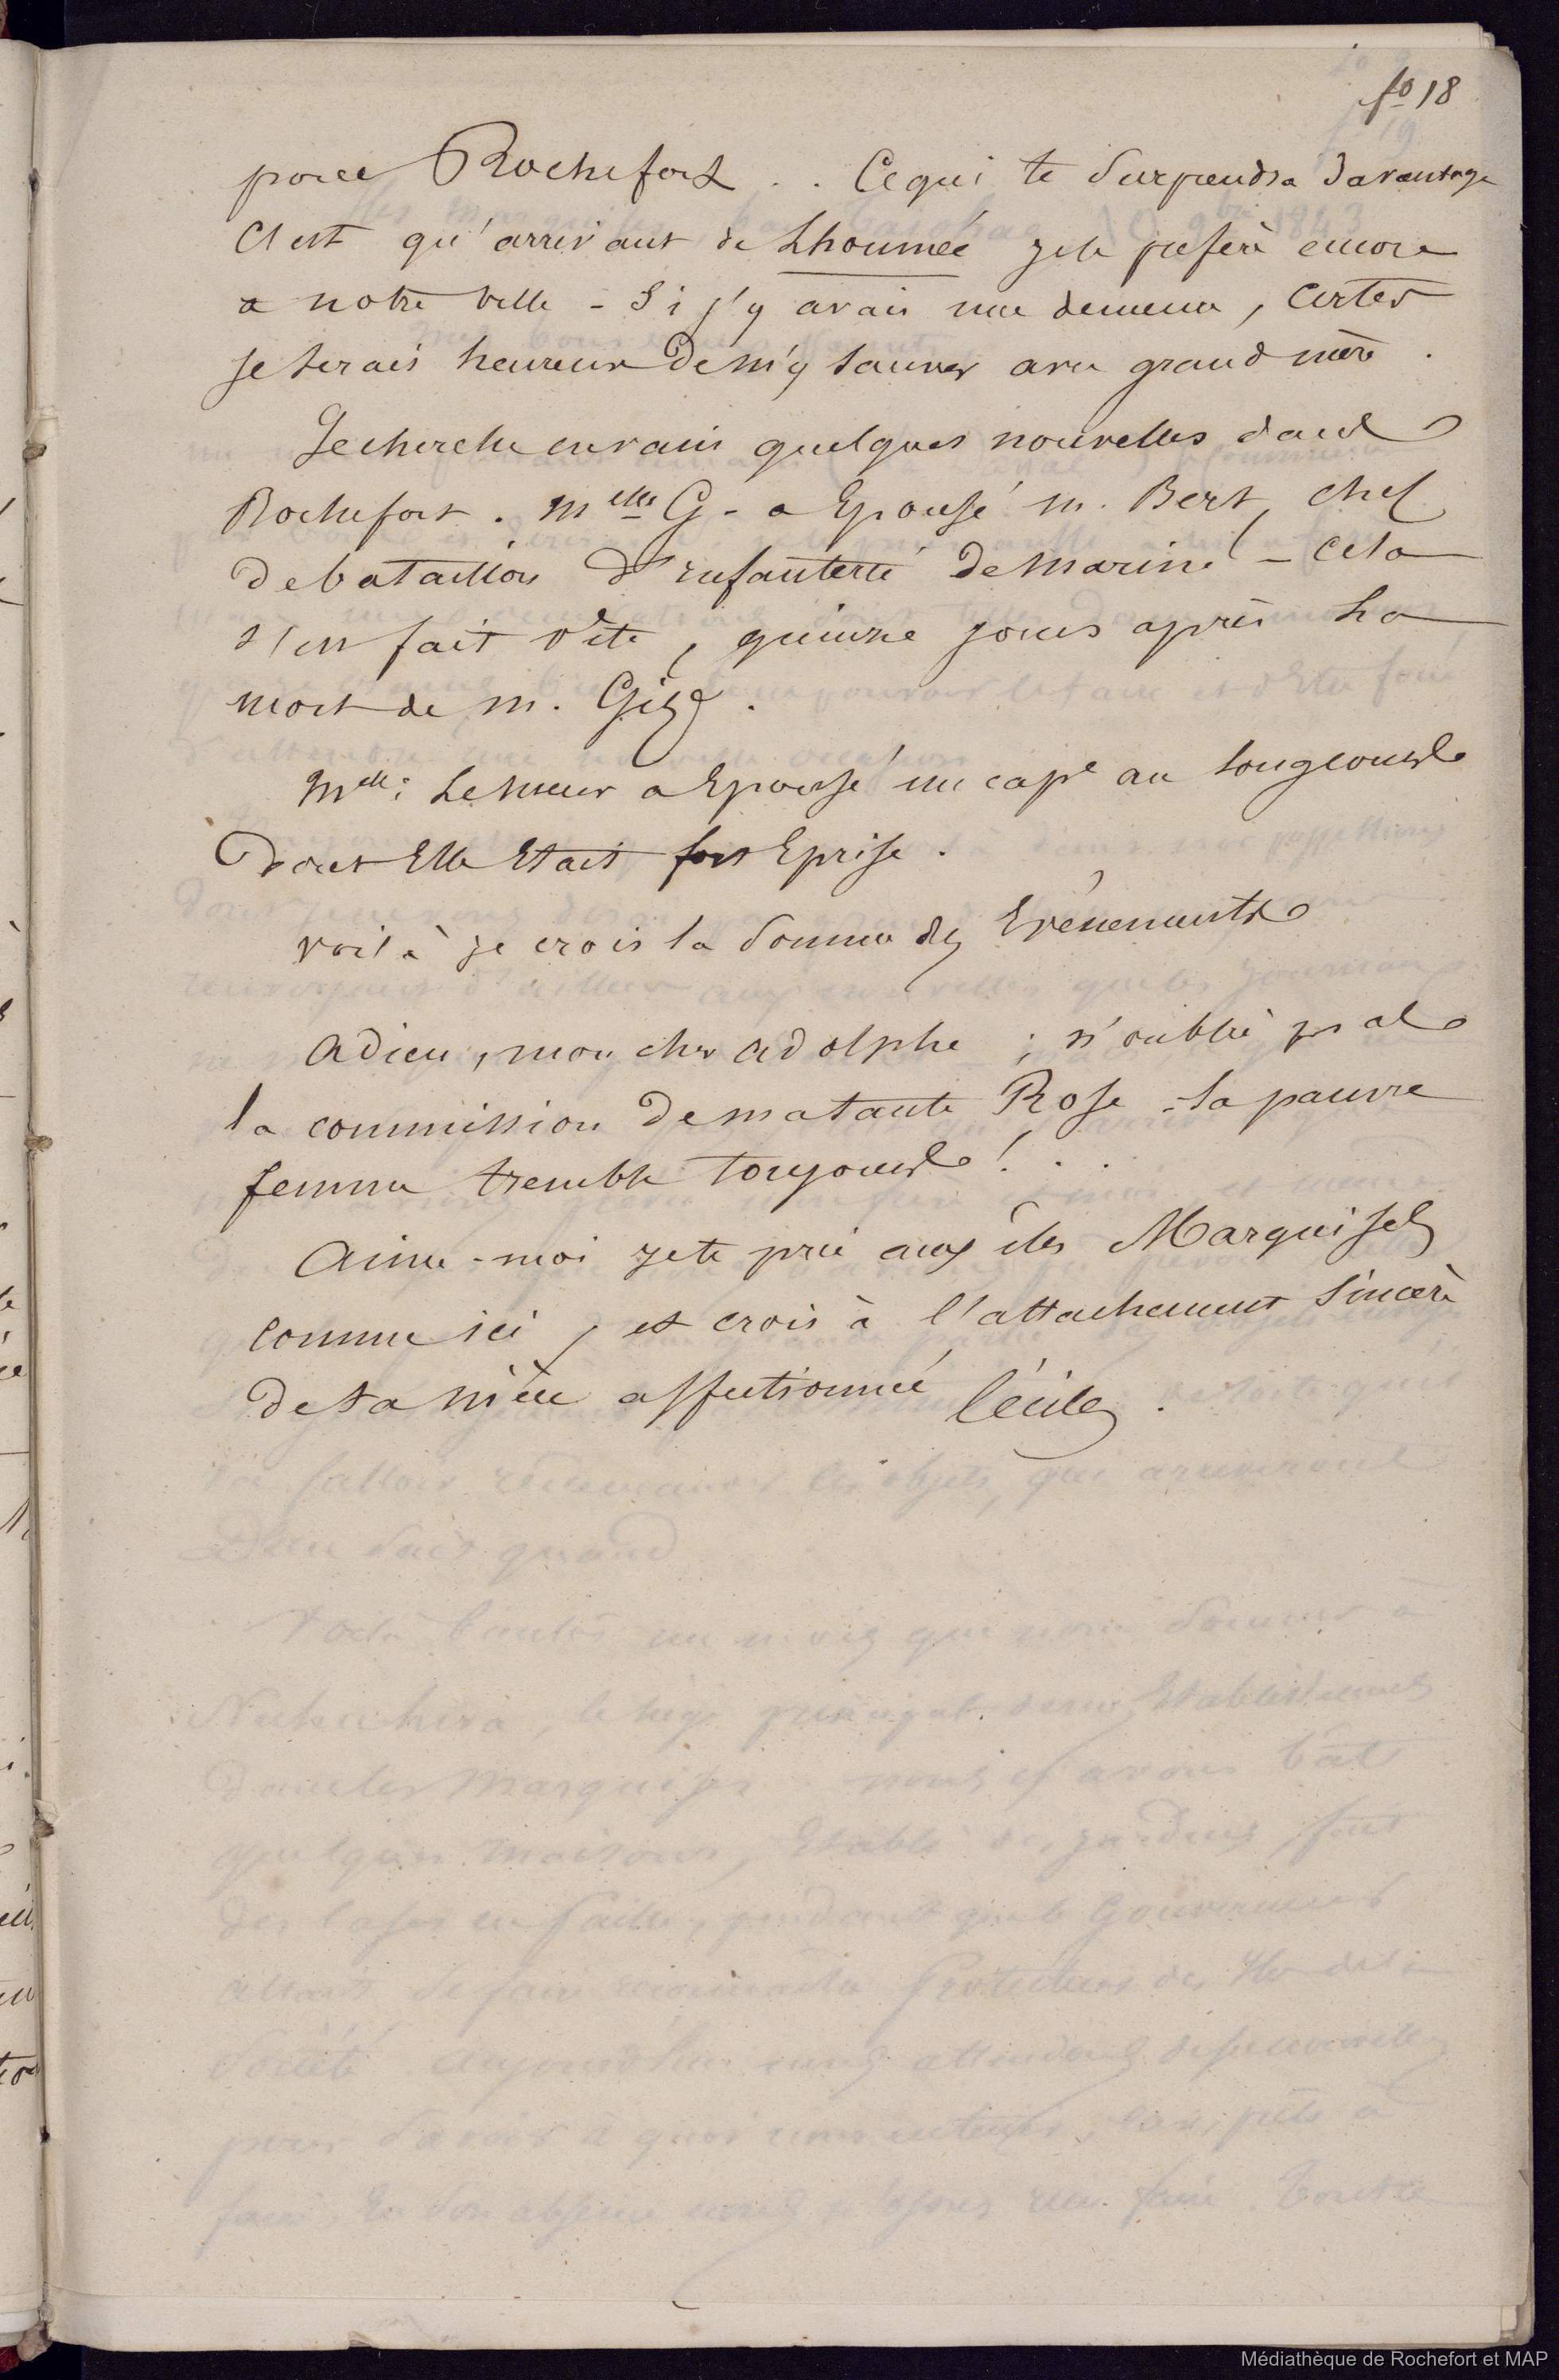 fo 18
pour Rochefort . . Ce qui te surprendra davantage
c'est qu'arrivant de Lhoumée je le préfère encore
a notre ville - Si j'y avais une demeure, certes
je serais heureux de m'y sauver avec grand mère .
Je cherche en vain quelques nouvelles dans
Rochefort . Melle G - a Epousé M. Bert, chef
de bataillon d'infanterie de marine - Cela
s'est fait vite, quinze jours après la
mort de M. .
Melle Lesueur a Epousé un cape au long cours
dont Elle Etait fort Eprise .
voilà je crois la somme des Evénements
adieu, mon cher adolphe ; n'oublie pas
la commission de ma tante Rose - la pauvre
femme tremble toujours ! . .
Aime-moi je te prie aux îles Marquises
comme ici, et crois à l'attachement sincère
de ta nièce affectionnée Cécile .
Médiathèque de Rochefort et MAP